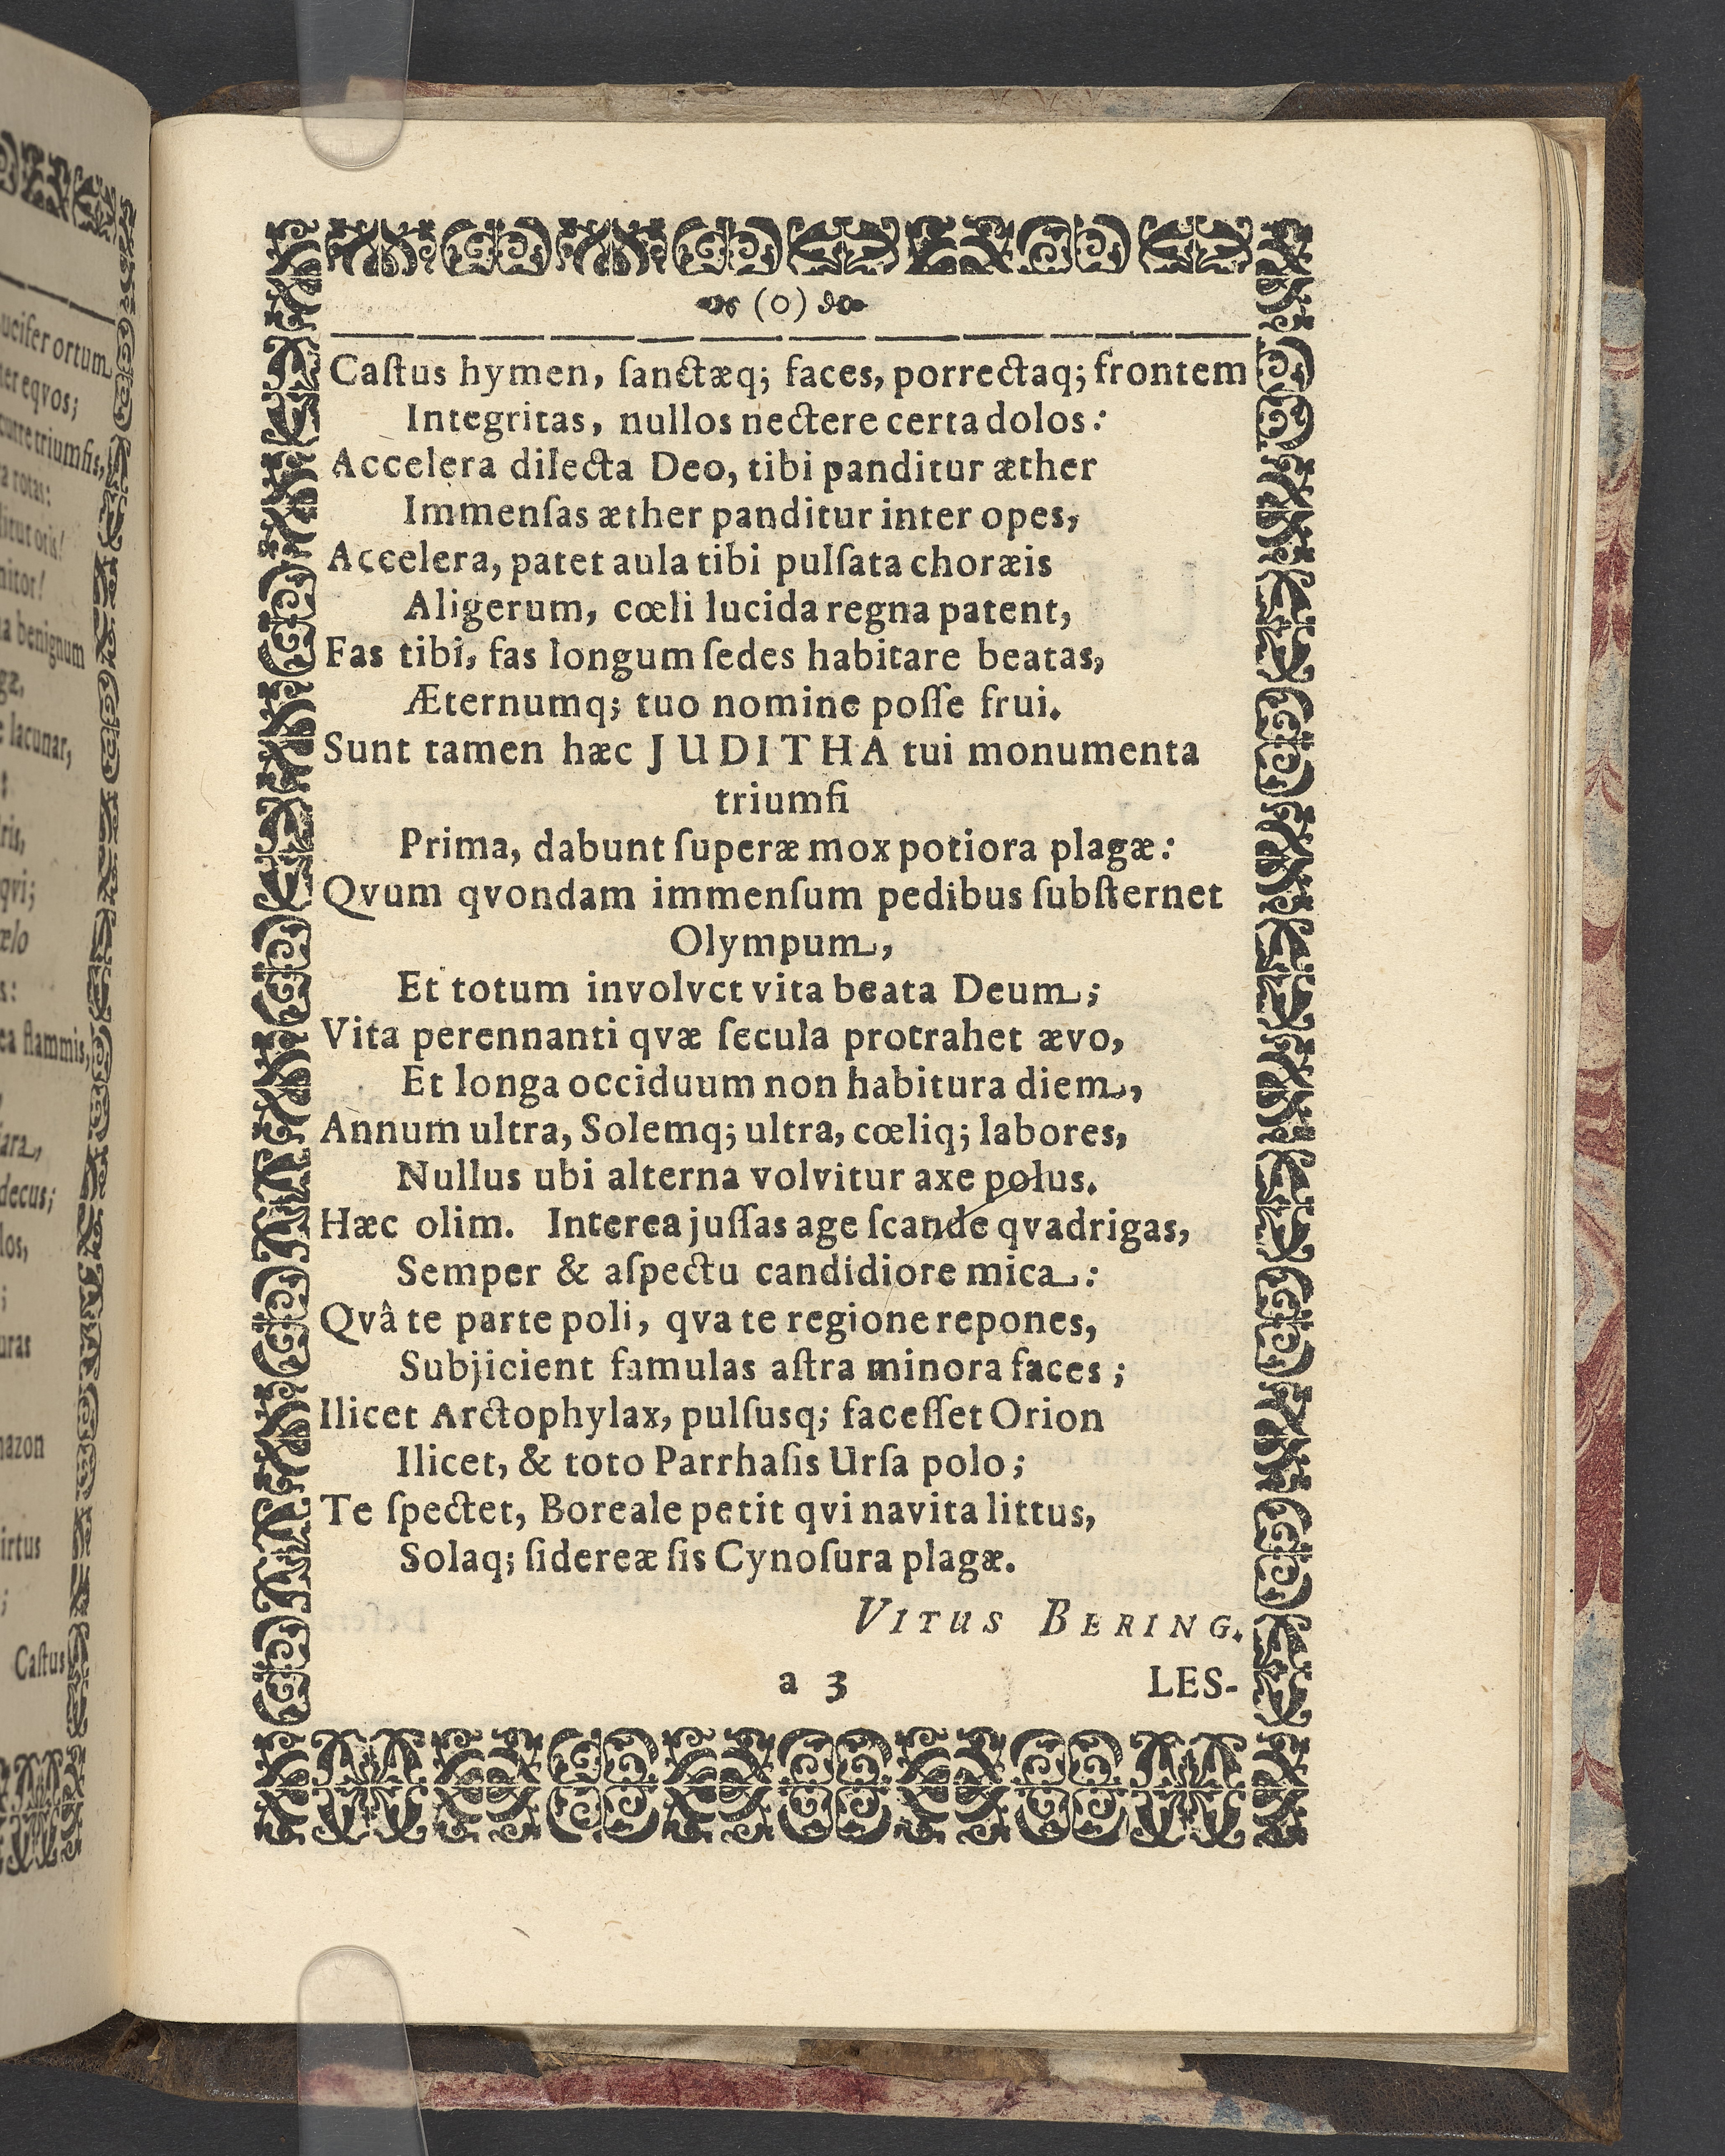 ucifer ortum
er eqvos;
curre triumfis,
a rotas:
ditut oris!
nitor!
a benignum
gæ,
e lacunar,
ris,
qvi;
œlo
s:
ea flammis,
ara,
decus;
los,
;
uras
nazon
irtus
;
Caſtus
(o)
Caſtus hymen, ſanctæq; faces, porrectaq; frontem
Integritas, nullos nectere certa dolos:
Accelera dilecta Deo, tibi panditur æther
Immenſas æther panditur inter opes,
Accelera, patet aula tibi pulſata choræis
Aligerum, cœli lucida regna patent,
Fas tibi, fas longum ſedes habitare beatas,
Æternumq; tuo nomine poſſe frui.
Sunt tamen hæc JUDITHA tui monumenta
triumfi
Prima, dabunt ſuperæ mox potiora plagæ:
Qvum qvondam immenſum pedibus ſubſternet
Olympum,
Et totum involvet vita beata Deum;
Vita perennanti qvæ ſecula protrahet ævo,
Et longa occiduum non habitura diem,
Annum ultra, Solemq; ultra, cœliq; labores,
Nullus ubi alterna volvitur axe polus.
Hæc olim. Interea juſſas age ſcande qvadrigas,
Semper & aſpectu candidiore mica:
Qvâ te parte poli, qva te regione repones,
Subjicient famulas aſtra minora faces;
Ilicet Arctophylax, pulſusq; faceſſet Orion
Ilicet, & toto Parrhaſis Urſa polo;
Te ſpectet, Boreale petit qvi navita littus,
Solaq; ſidereæ ſis Cynoſura plagæ.
VITUS BERING.
a 3 LES-